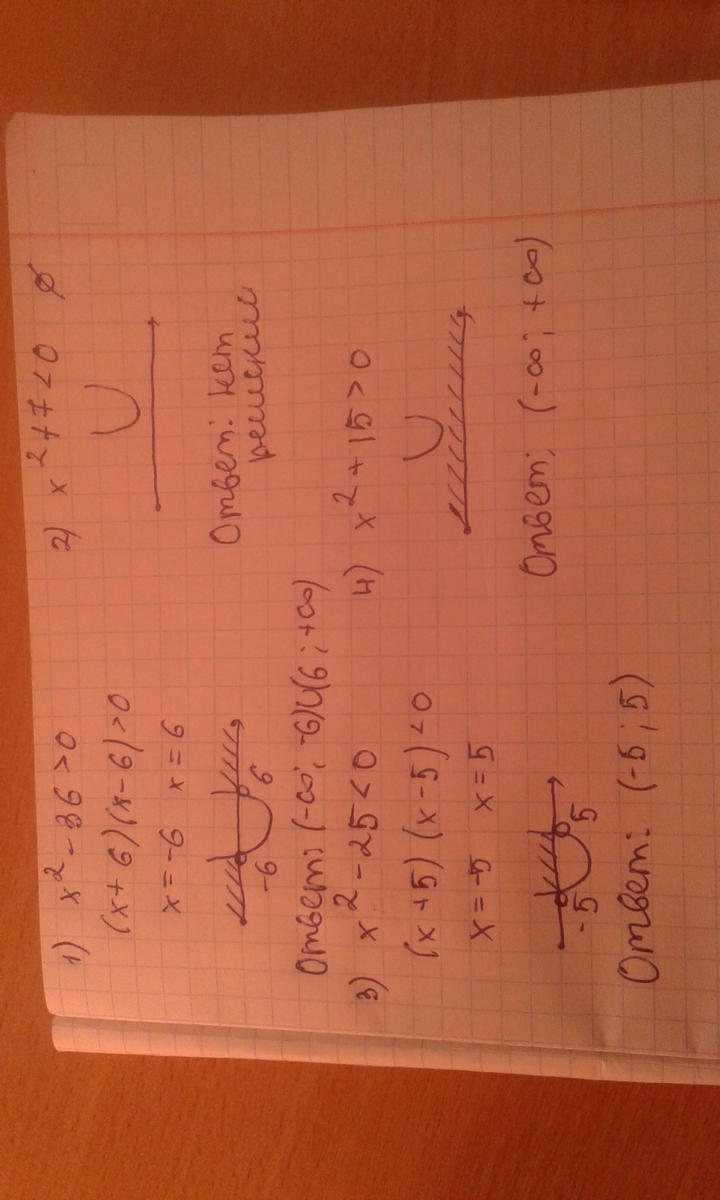 1) x² - 36 > 0
(x + 6)(x - 6) > 0
x = -6 x = 6
-6 6
Ответ: (-∞; -6)U(6; +∞)
2) x² + 7 < 0 ∅
Ответ: нет
решений
3) x² - 25 < 0
(x + 5)(x - 5) < 0
x = -5 x = 5
-5 5
Ответ: (-5; 5)
4) x² + 15 > 0
Ответ: (-∞; +∞)